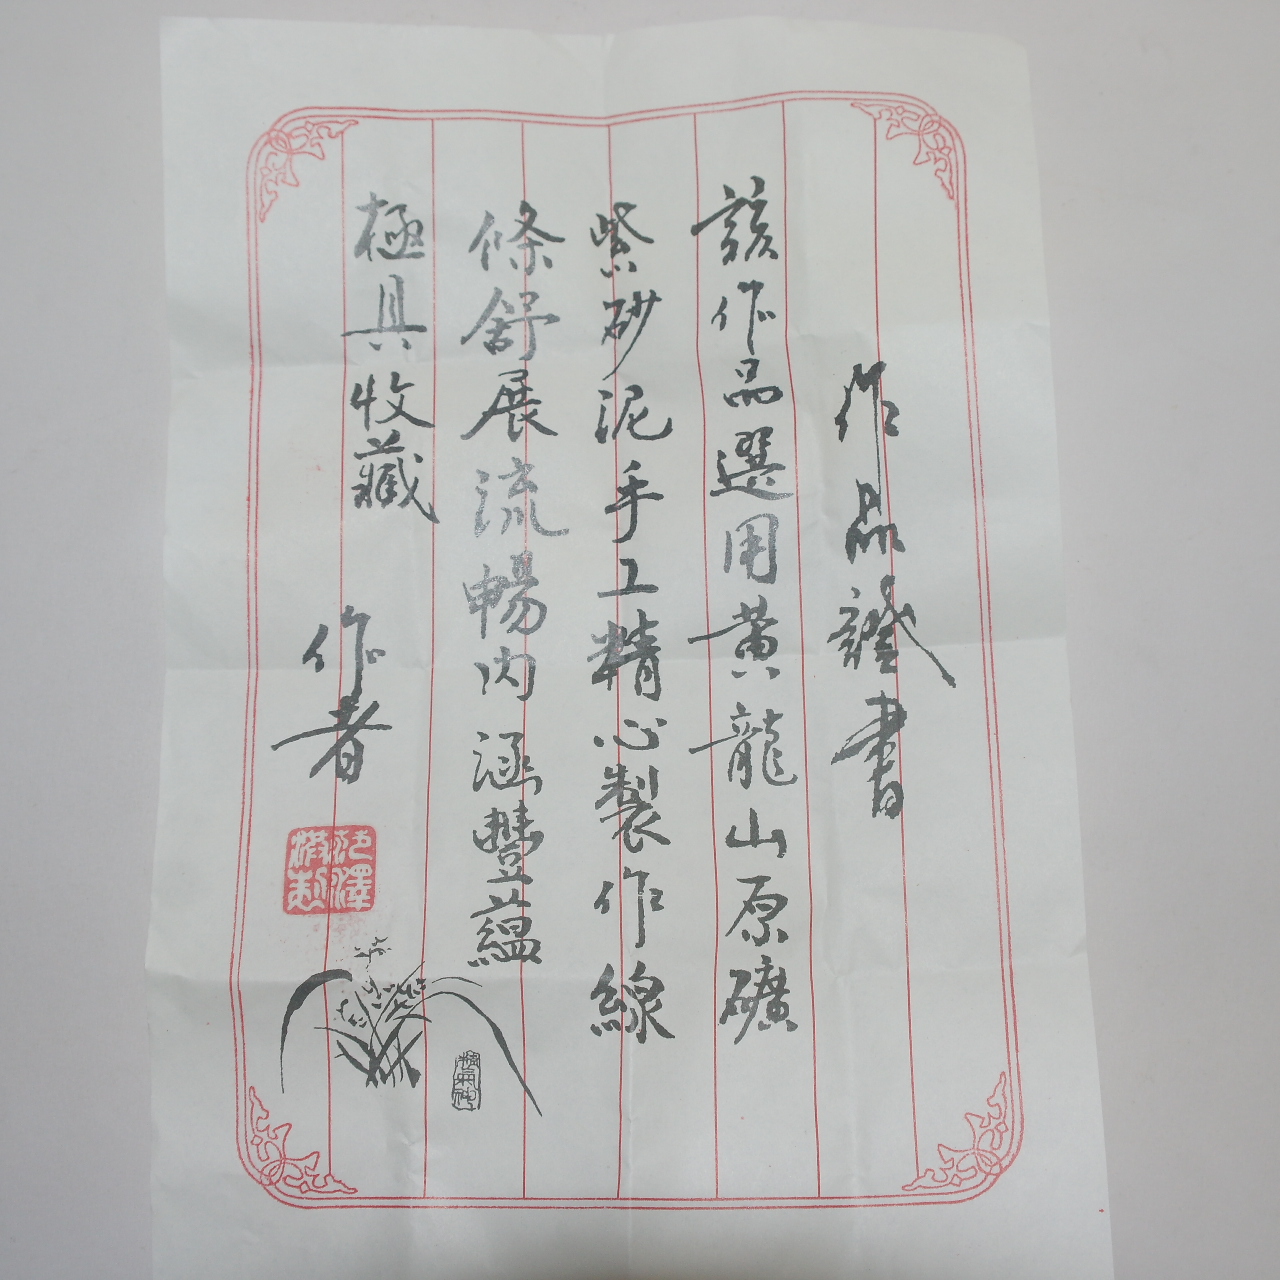 作品證書
該作品選用黄龍山原礦
紫砂泥手工精心製作線
條舒展流暢内涵豐蘊
極具收藏
作者